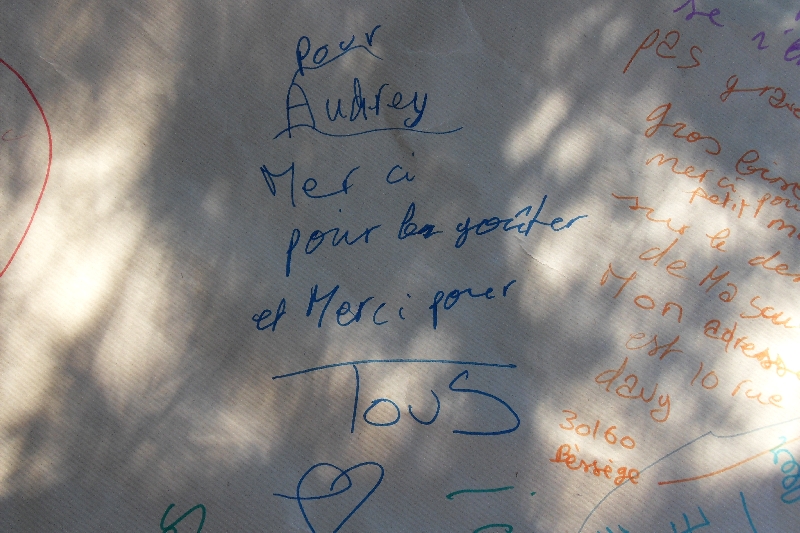 Pour
Audrey
Merci
pour le goûter
et Merci pour
TOUS
se
pas
gros
merci pour
petit
sur le
de Ma
Mon adresse
est 10 rue
davy
30160
Bèssège